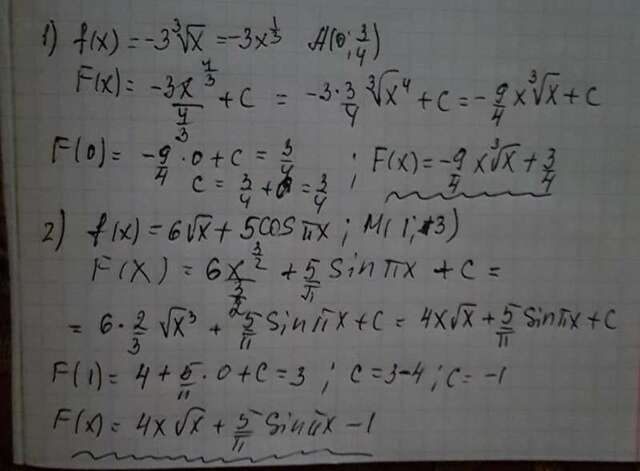 1) f(x) = -3∛x = -3x^(1/3) A(0; 3/4)
F(x) = (-3x^(4/3))/(4/3) + C = -3·3/4 ∛x⁴ + C = -9/4 x∛x + C
F(0) = -9/4 · 0 + C = 3/4 ; F(x) = -9/4 x∛x + 3/4
C = 3/4 + 0 = 3/4 ;
2) f(x) = 6√x + 5cos πx ; M(1; 3)
F(x) = (6x^(3/2))/(3/2) + 5/π sin πx + C =
= 6·2/3 √x³ + 5/π sin πx + C = 4x√x + 5/π sin πx + C
F(1) = 4 + 5/π · 0 + C = 3 ; C = 3-4 ; C = -1
F(x) = 4x√x + 5/π sin πx - 1